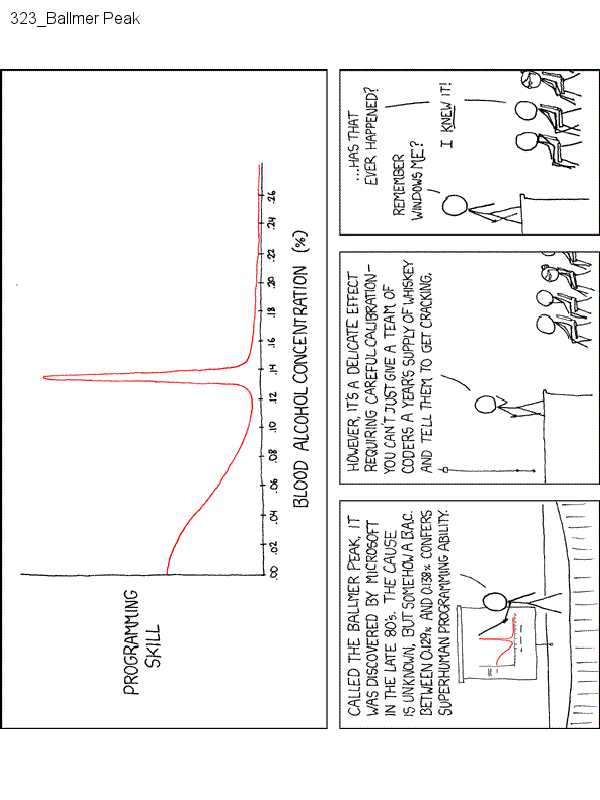 323_Ballmer Peak
PROGRAMMING
SKILL
.00 .02 .04 .06 .08 .10 .12 .14 .16 .18 .20 .22 .24 .26
BLOOD ALCOHOL CONCENTRATION (%)
CALLED THE BALLMER PEAK, IT
WAS DISCOVERED BY MICROSOFT
IN THE LATE 80's. THE CAUSE
IS UNKNOWN, BUT SOMEHOW A B.A.C.
BETWEEN 0.129% AND 0.138% CONFERS
SUPERHUMAN PROGRAMMING ABILITY.
HOWEVER, IT'S A DELICATE EFFECT
REQUIRING CAREFUL CALIBRATION–
YOU CAN'T JUST GIVE A TEAM OF
CODERS A YEAR'S SUPPLY OF WHISKEY
AND TELL THEM TO GET CRACKING.
...HAS THAT
EVER HAPPENED?
REMEMBER
WINDOWS ME?
I KNEW IT!